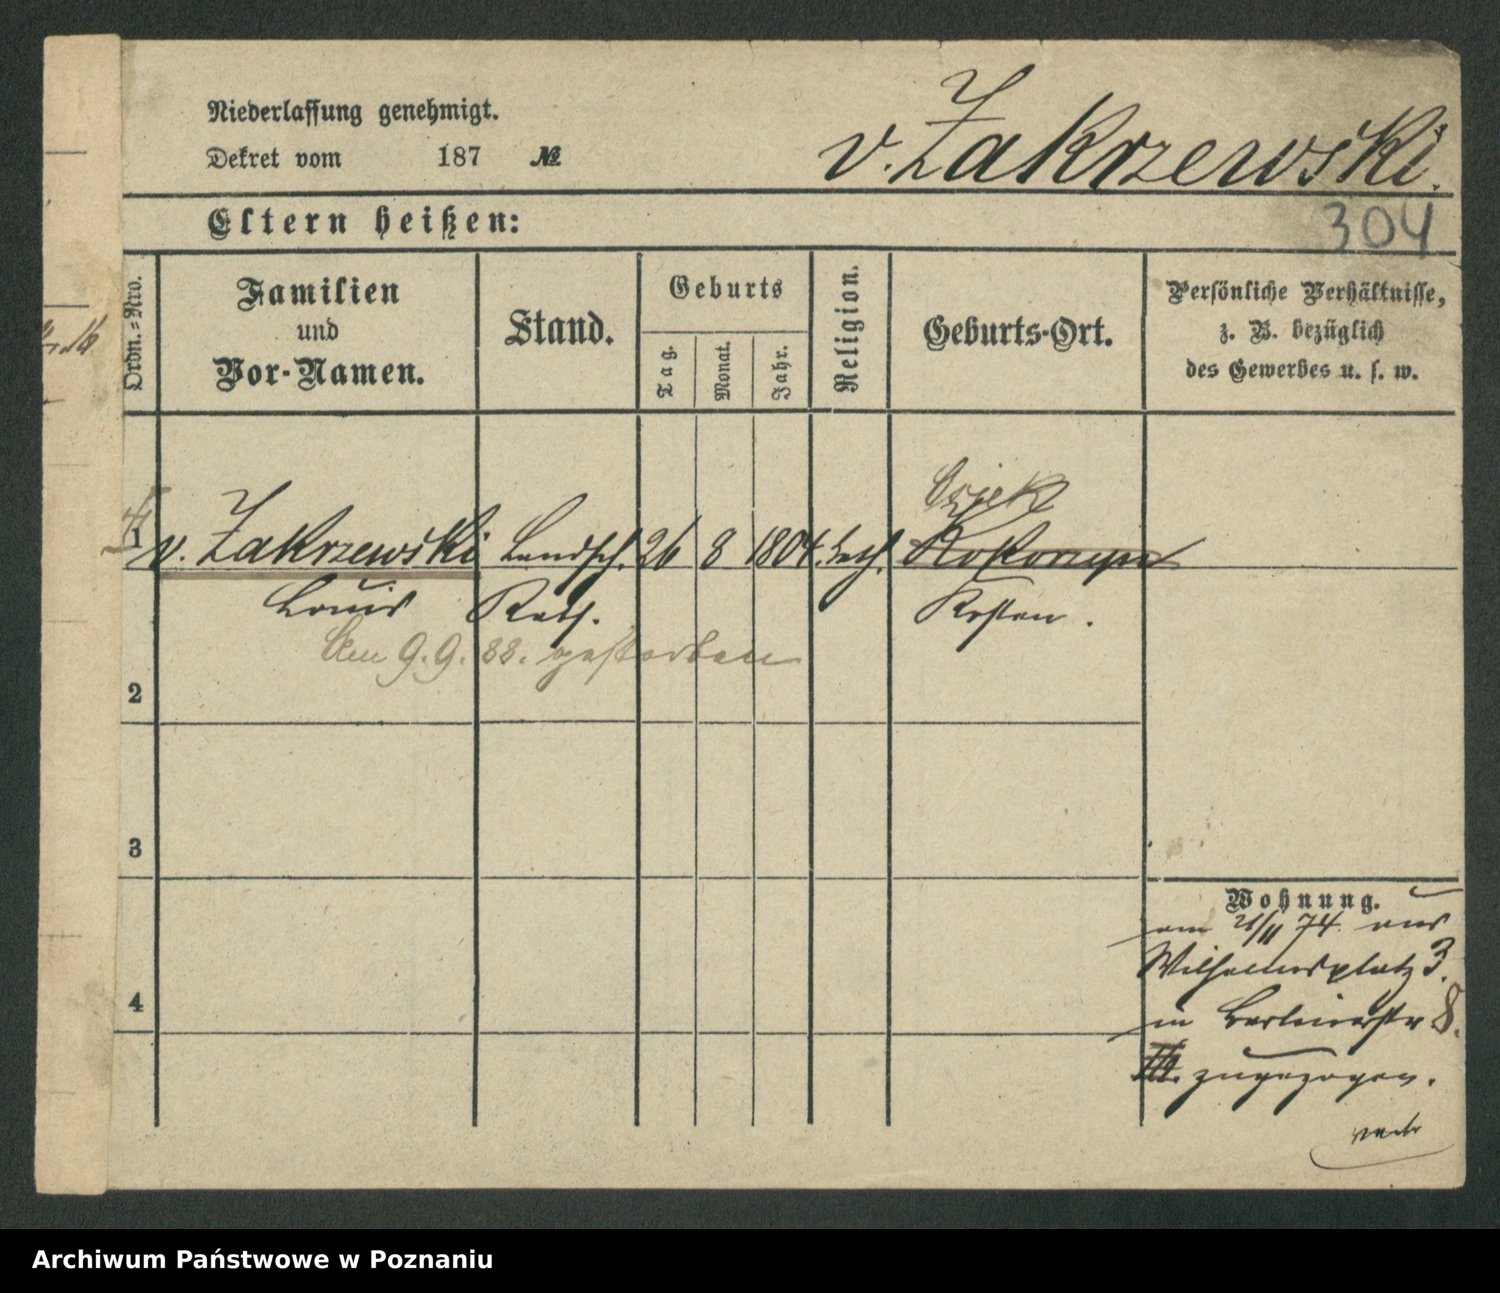 Niederlassung genehmigt.
Dekret vom 187 №
v. Zakrzewski.
Eltern heißen:
304
Ordn.=Nro.
Familien
und
Vor-Namen.
Stand.
Geburts
Tag.
Monat.
Jahr.
Religion.
Geburts-Ort.
Persönliche Verhältnisse,
z. B. bezüglich
des Gewerbes u. s. w.
1 v. Zakrzewski Landsch. 26 8 1804. kath.
Louis Rath. Kosten.
Am 9.9.88. gestorben
2
3
4
Wohnung.
am 21/11 74. aus
Wilhelmsplatz 3.
in Berlinerstr 8.
zugezogen.
Archiwum Państwowe w Poznaniu